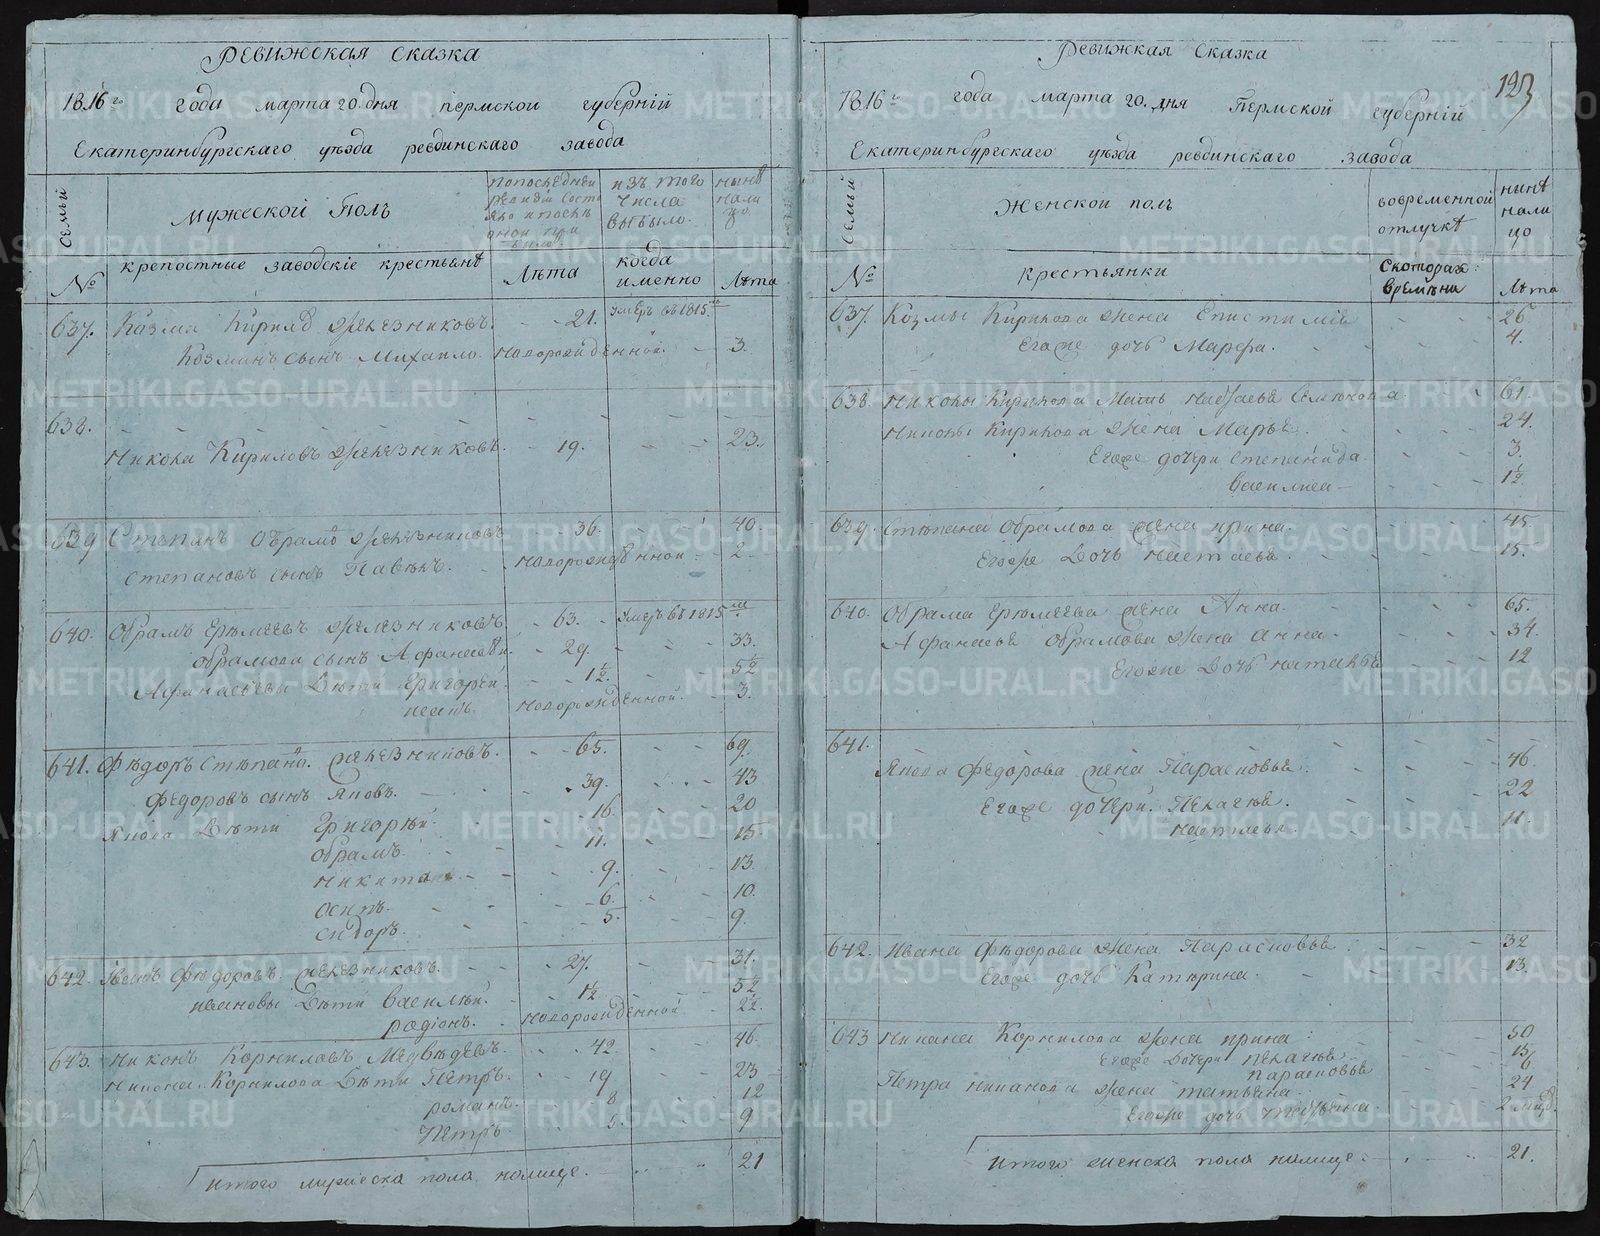 Ревижская Сказка
1816 го года марта 20. дня пермской губерніи
Екатеринбургскаго уѣзда ревдинскаго завода
Семьи
Мужеской Полъ
изъ того числа выбыло.
нынѣ нали цо.
№
крепостные заводскіе крестьянѣ
Лѣта
когда именно
Лѣта
637. Казма Кирилѡ Железниковъ. 21. умеръ въ 1815 мъ
Козминъ сынъ Михаило. новорожденной. 3.
638.
Никола Кириловъ Железниковъ. 19. 23.
639 Степанъ Обрамѡ Железниковъ 36. 40.
Степановъ сынъ Павелъ. новорожденной 2.
640. Обрамъ Ерѣмеевъ Железниковъ 63. Умеръ въ 1815 мъ
Обрамова сынъ Афанасеи. 29. 33.
Афанасьевы Дѣти Григореи. 1½. 5½
новорожденной. 3.
641. Фѣдоръ Стѣпанѡ. железниковъ. 65. 69.
Федоровъ сынъ Яковъ. 39. 43
Якова Дѣти Григорѣи. 16. 20
Обрамъ. 11. 15.
Никита 9. 13.
Осипъ. 6. 10.
Сидоръ. 5. 9.
642. Іванъ Фѣдоровъ железниковъ. 27. 31.
ивановы Дѣти Василѣи. 1½ 5½
родіонъ. новорожденной 2½.
643. Никонъ Корниловъ Медвѣдевъ. 42. 46.
Никона Корнилова Дѣти Петръ. 19 23
романъ. 8 12
Петръ 5. 9
Итого мужеска пола налице. 21
Ревижская Сказка
123
1816 го года марта 20. дня Пермской губерніи
Екатеринбургскаго уѣзда ревдинскаго завода
Семьи
Женской полъ
вовременной отлучкѣ
нынѣ нали цо
№
крестьянки
Скотораго времѣна
Лѣта
637. Козмы Кирилова жена Епистимія 26
Егоже дочь Марфа. 4.
638. Николы Кирилова Мать Семѣнова. 61.
Николы Кирилова жена Марья. 24.
Егоже дочери степанида. 3.
Василиса 1½
639. Стѣпана Обрамова жена ирина. 45.
Егоже Дочь Настасья. 15.
640. Обрама Ерѣмеева жена Анна. 65.
Афанасья Обрамова жена анна. 34.
Егоже Дочь наталья 12
641.
Якова Федорова жена Парасковья. 46.
Егоже дочери. Пелагѣя. 22
Настасья. 11.
642. Ивана Фѣдорова жена Парасковья 32
Егоже дочь Катѣрина. 13.
643 Никона Корнилова жена ирина: 50
Егоже Дочери пелагѣя. 15
парасковья 6
Петра никонова жена татьяна. 24
Егоже дочь
Итого женска пола налице. 21.